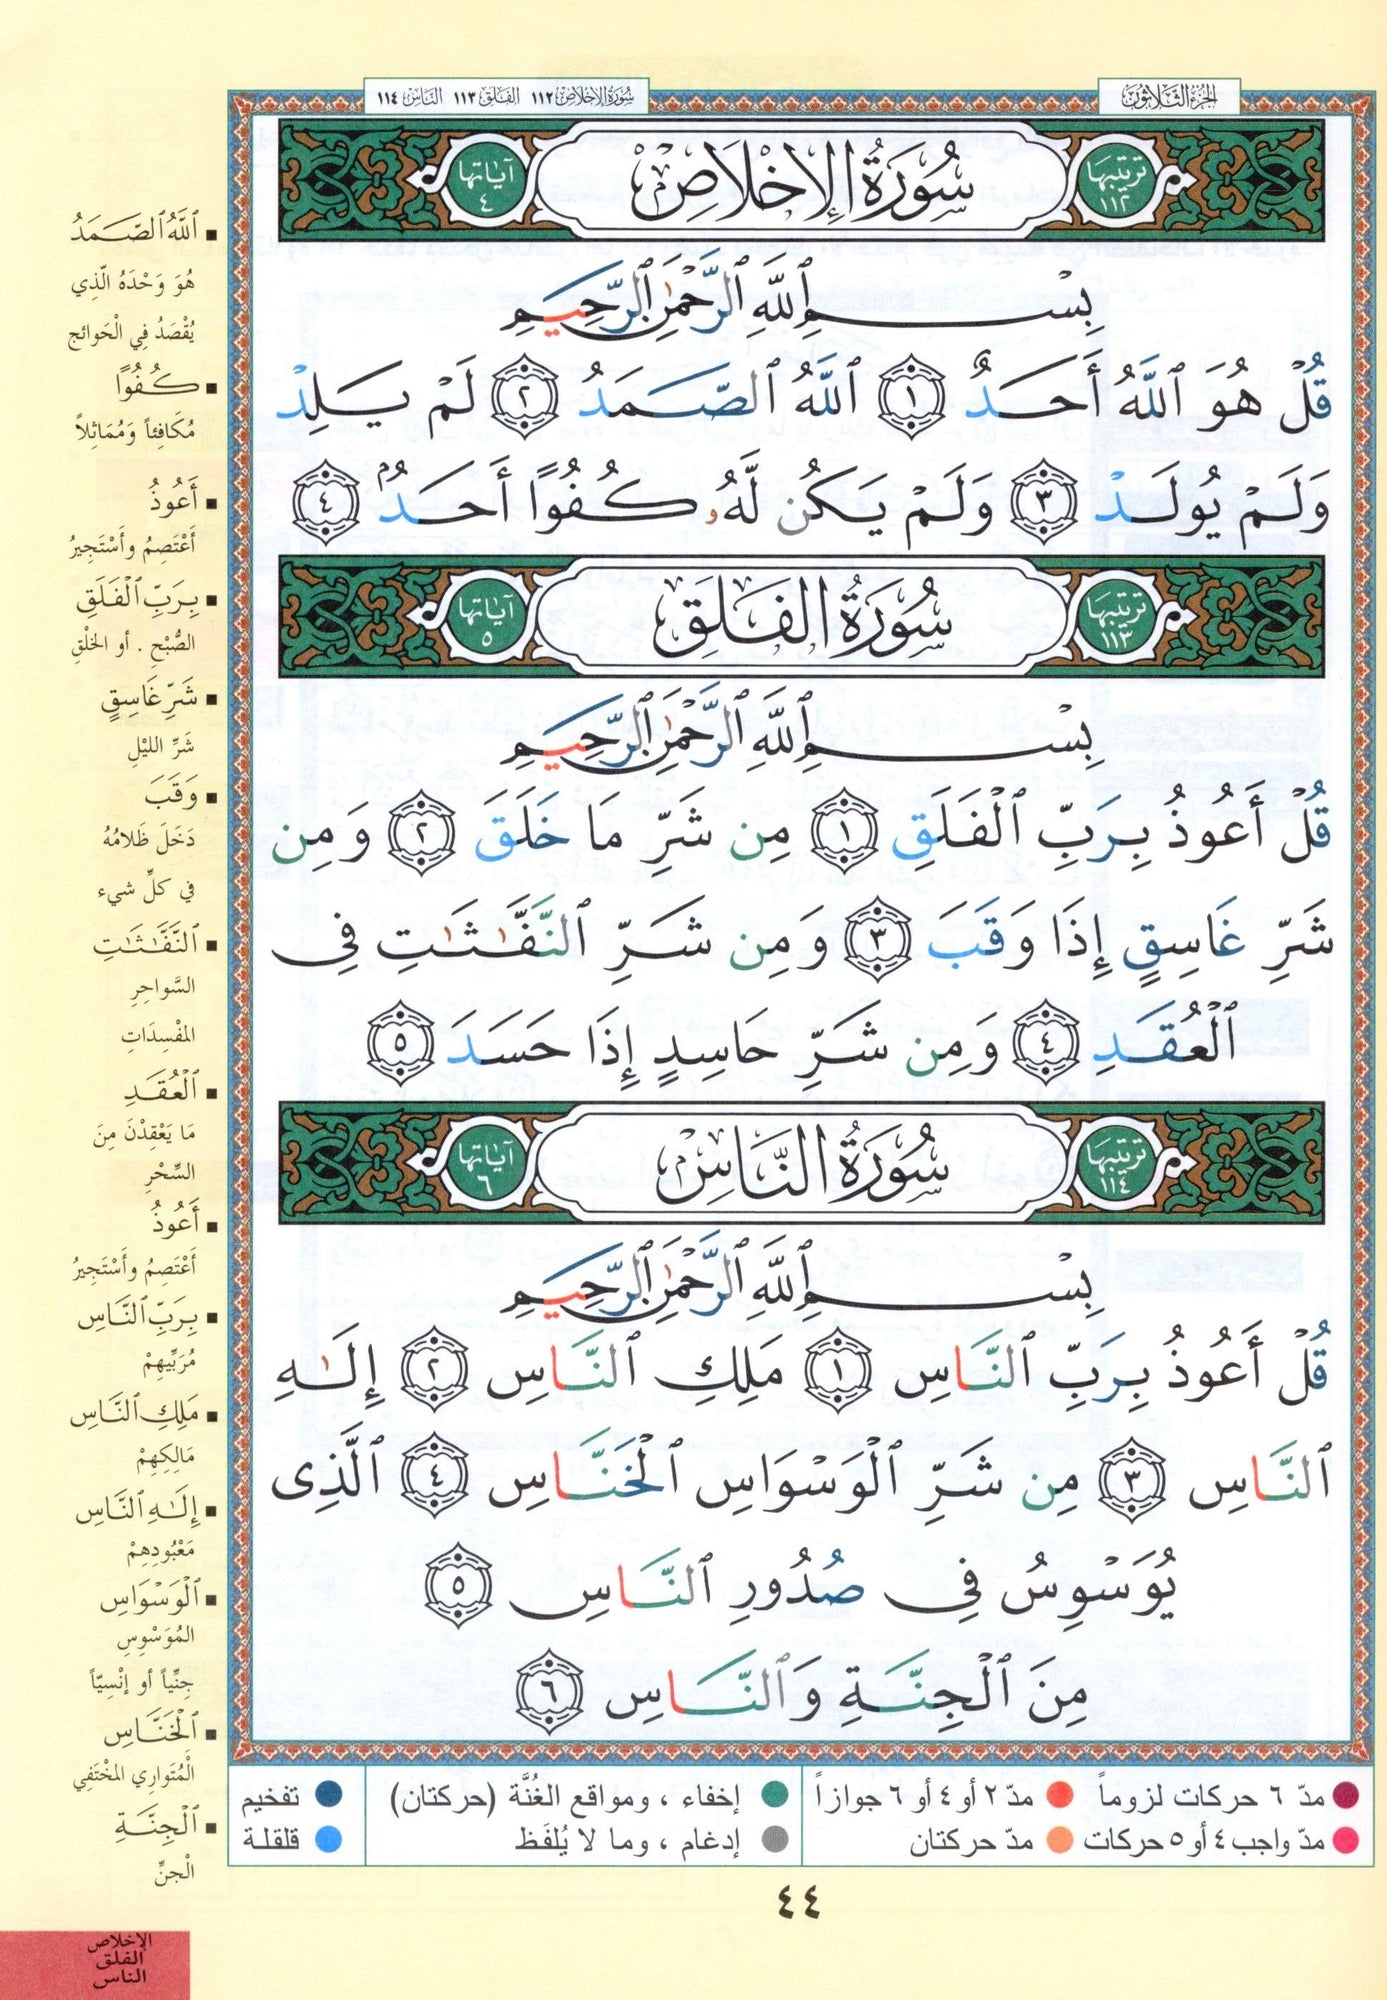 الجزء الثلاثون
سورة الإخلاص ١١٢ الفلق ١١٣ الناس ١١٤
ترتيبها ١١٢
سُورَةُ الإِخْلَاصِ
آياتها ٤
بِسْمِ ٱللَّهِ ٱلرَّحْمَٰنِ ٱلرَّحِيمِ
قُلْ هُوَ ٱللَّهُ أَحَدٌ ١ ٱللَّهُ ٱلصَّمَدُ ٢ لَمْ يَلِدْ
وَلَمْ يُولَدْ ٣ وَلَمْ يَكُن لَّهُۥ كُفُوًا أَحَدٌۢ ٤
ترتيبها ١١٣
سُورَةُ الفَلَقِ
آياتها ٥
بِسْمِ ٱللَّهِ ٱلرَّحْمَٰنِ ٱلرَّحِيمِ
قُلْ أَعُوذُ بِرَبِّ ٱلْفَلَقِ ١ مِن شَرِّ مَا خَلَقَ ٢ وَمِن
شَرِّ غَاسِقٍ إِذَا وَقَبَ ٣ وَمِن شَرِّ ٱلنَّفَّٰثَٰتِ فِى
ٱلْعُقَدِ ٤ وَمِن شَرِّ حَاسِدٍ إِذَا حَسَدَ ٥
ترتيبها ١١٤
سُورَةُ النَّاسِ
آياتها ٦
بِسْمِ ٱللَّهِ ٱلرَّحْمَٰنِ ٱلرَّحِيمِ
قُلْ أَعُوذُ بِرَبِّ ٱلنَّاسِ ١ مَلِكِ ٱلنَّاسِ ٢ إِلَٰهِ
ٱلنَّاسِ ٣ مِن شَرِّ ٱلْوَسْوَاسِ ٱلْخَنَّاسِ ٤ ٱلَّذِى
يُوَسْوِسُ فِى صُدُورِ ٱلنَّاسِ ٥
مِنَ ٱلْجِنَّةِ وَٱلنَّاسِ ٦
ٱللَّهُ ٱلصَّمَدُ
هُوَ وَحْدَهُ الَّذِي
يُقْصَدُ فِي الْحَوائج
كُفُوًا
مُكَافِئاً وَمُمَاثِلاً
أَعُوذُ
أَعْتَصِمُ وأَسْتَجِيرُ
بِرَبِّ ٱلْفَلَقِ
الصُّبْحِ . أو الخلْقِ
شَرِّ غَاسِقٍ
شَرِّ الليْلِ
وَقَبَ
دَخَلَ ظَلامُهُ
في كلِّ شيء
ٱلنَّفَّٰثَٰتِ
السَّواحِرِ
المفْسِدَاتِ
ٱلْعُقَدِ
مَا يَعْقِدْنَ مِنَ
السِّحْرِ
أَعُوذُ
أَعْتَصِمُ وأَسْتَجِيرُ
بِرَبِّ ٱلنَّاسِ
مُرَبِّيهِمْ
مَلِكِ ٱلنَّاسِ
مَالِكِهِمْ
إِلَٰهِ ٱلنَّاسِ
مَعْبُودِهِمْ
ٱلْوَسْوَاسِ
المُوَسْوِسِ
جِنِّياً أو إنْسِيّاً
ٱلْخَنَّاسِ
الْمُتَوارِي المخْتَفِي
ٱلْجِنَّةِ
الْجنِّ
مدّ ٦ حركات لزوماً
مدّ ٢ أو ٤ أو ٦ جوازاً
إخفاء ، ومواقع الغُنَّة (حركتان)
تفخيم
مدّ واجب ٤ أو ٥ حركات
مدّ حركتان
إدغام ، وما لا يُلفَظ
قلقلة
٤٤
الإخلاص
الفلق
الناس